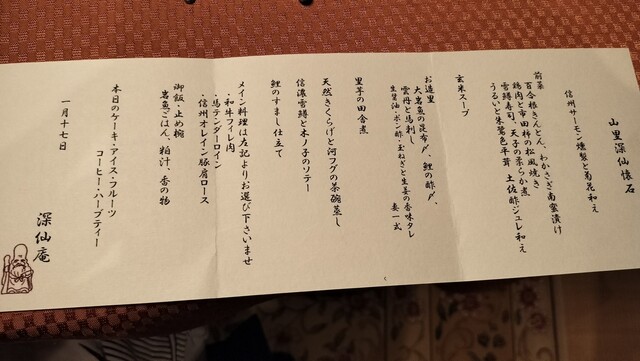 山里深仙懐石
信州サーモン燻製と菊花和え
前菜
百合根きんとん、わかさぎ南蛮漬け
鶏肉と市田柿の松風焼き
雪鱒寿司、天子の柔らか煮
うるいと朱鷺色平茸 土佐酢ジュレ和え
玄米スープ
お造里
大岩魚の昆布〆、鯉の酢〆、
雲丹と馬刺し
生醤油・ポン酢・玉ねぎと生姜の香味タレ
妻一式
里芋の田舎煮
天然きくらげと河フグの茶碗蒸し
信濃雪鱒と木ノ子のソテー
鯉のすまし仕立て
メイン料理は左記よりお選び下さいませ
・和牛フィレ肉
・馬テンダーロイン
・信州オレイン豚肩ロース
御飯・止め椀
岩魚ごはん、粕汁、香の物
本日のケーキ・アイス・フルーツ
コーヒー・ハーブティー
一月十七日
深仙庵